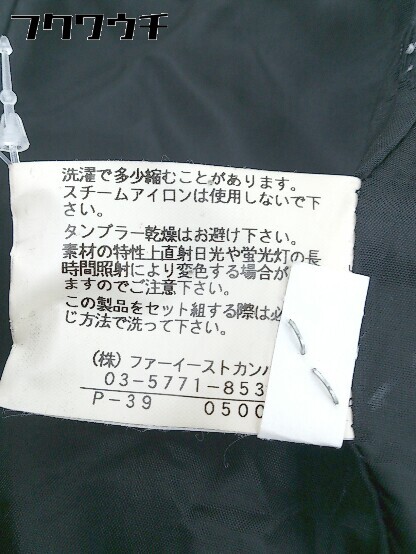 フクワウチ
洗濯で多少縮むことがあります。
スチームアイロンは使用しないで下
さい。
タンブラー乾燥はお避け下さい。
素材の特性上直射日光や蛍光灯の長
時間照射により変色する場合が
ますのでご注意下さい。
この製品をセット組する際は必
じ方法で洗って下さい。
(株) ファーイーストカンパ
03-5771-853
P-39 0500